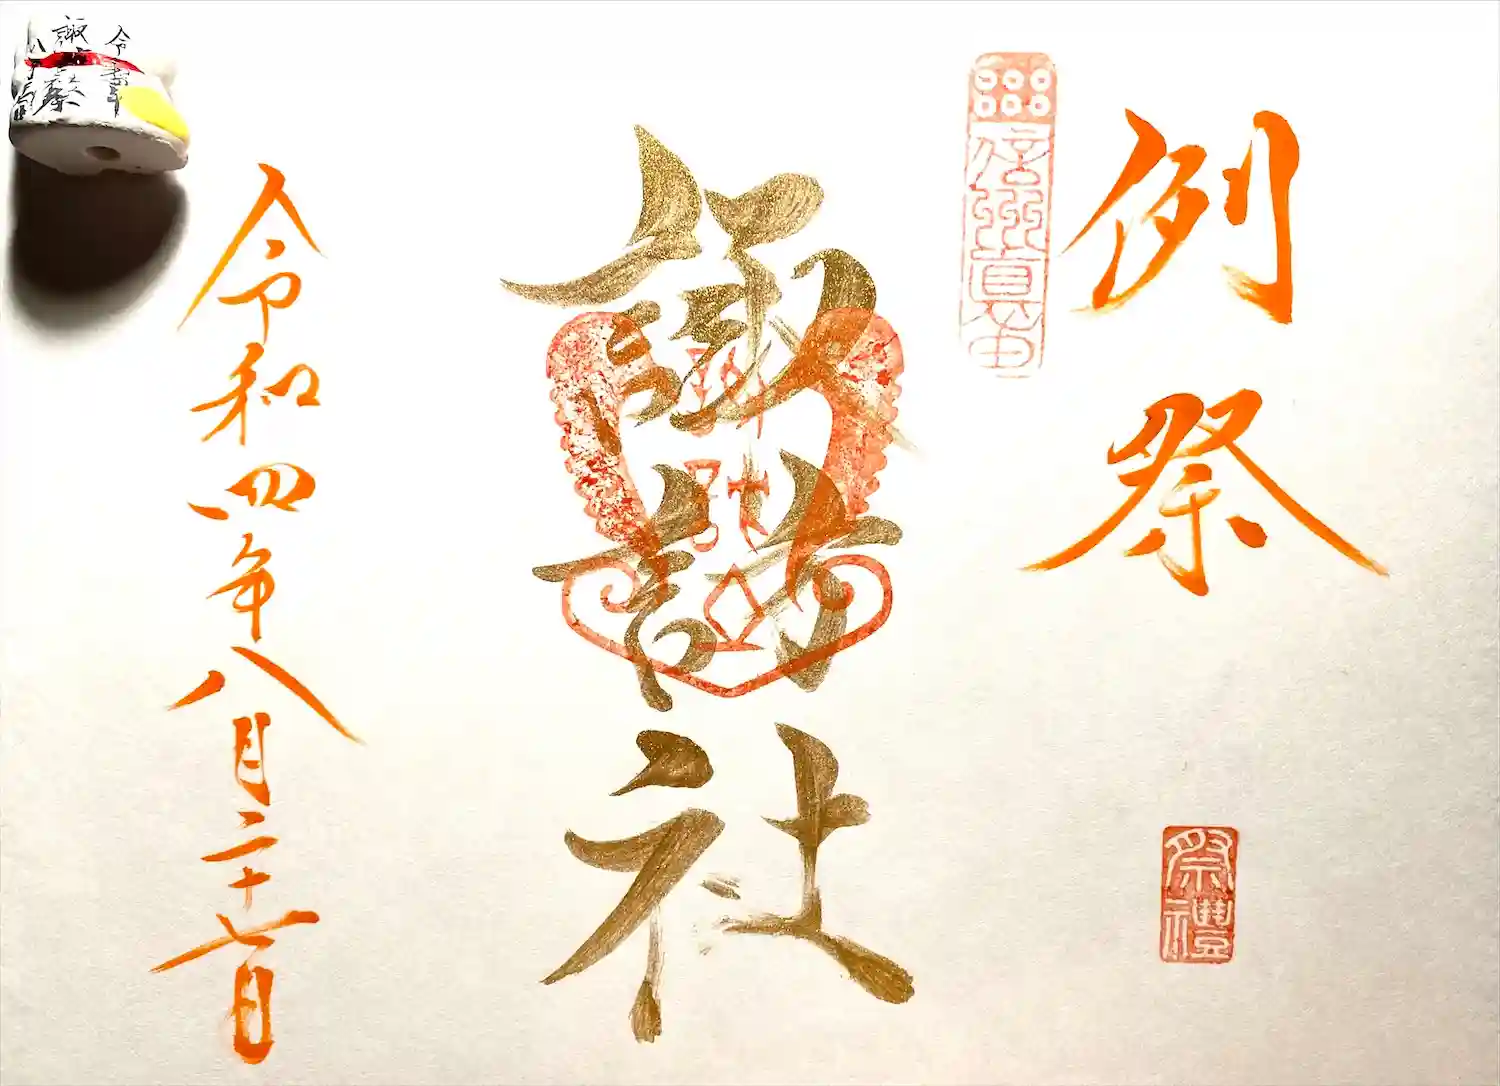 例祭
信州真田
祭禮
諏訪社
令和四年八月二十七日